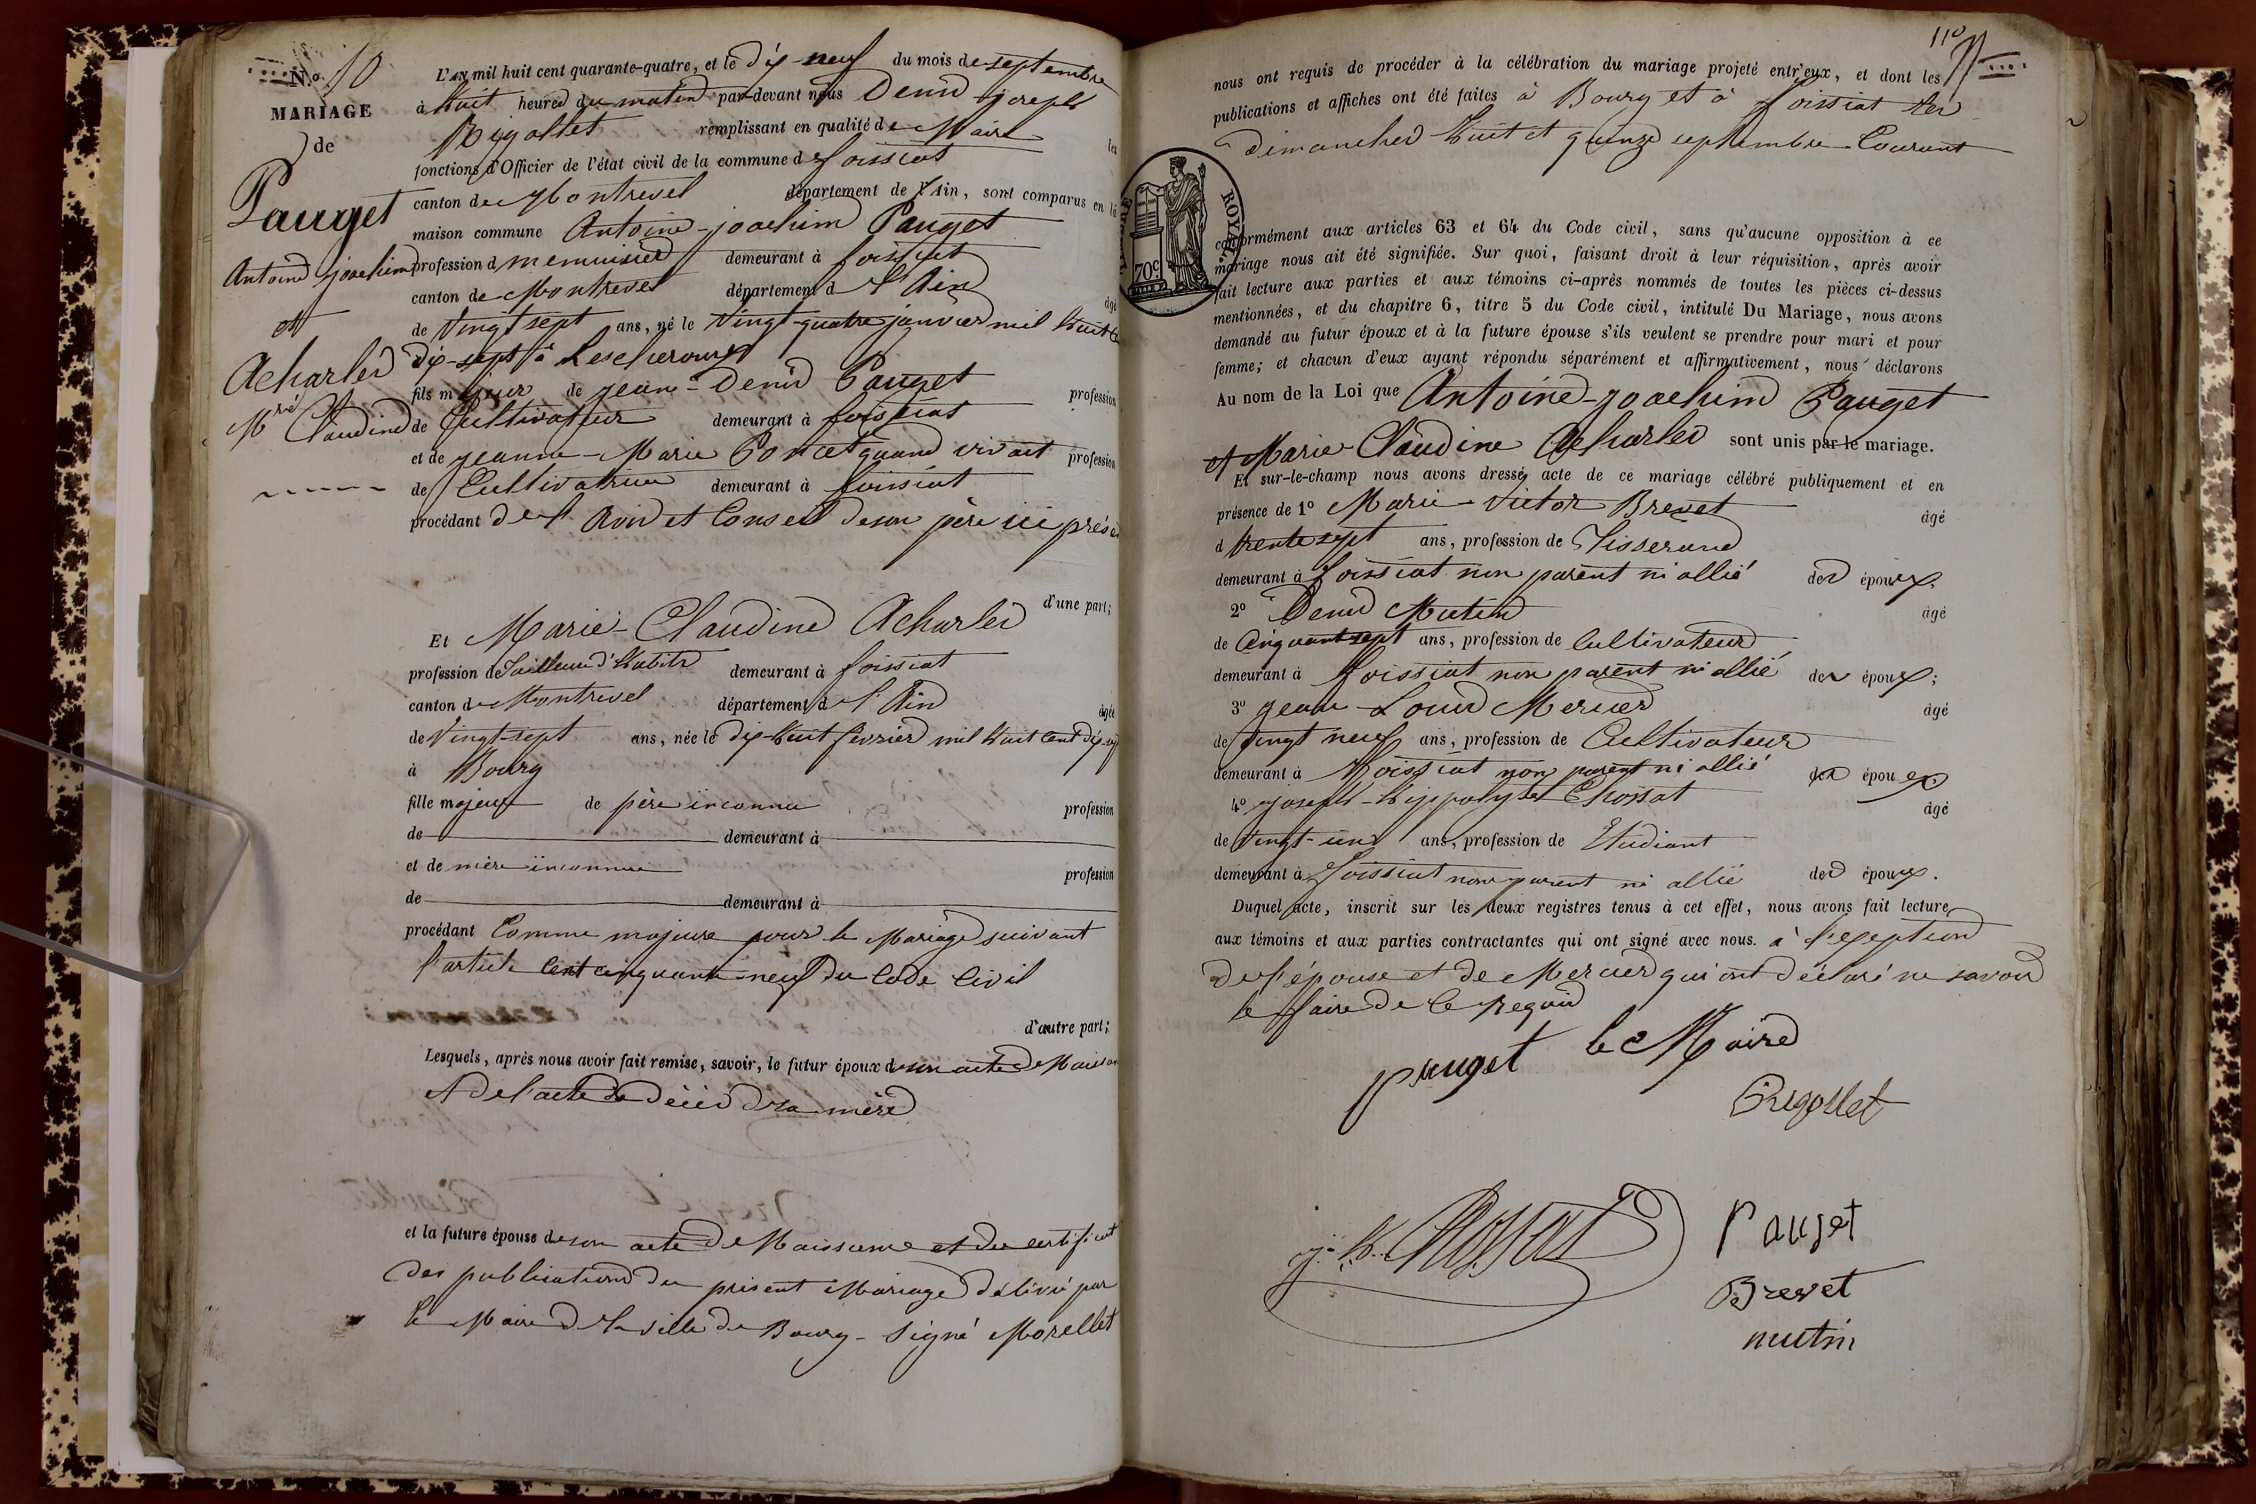 N.o 10
MARIAGE
de
Pauget
Antoine joachim
et
Acharles
Mrie Claudine
L'AN mil huit cent quarante-quatre, et le dix-neuf du mois de septembre
à huit heures du matin par-devant nous Denis joseph
Rigollet remplissant en qualité de Maire les
fonctions d'Officier de l'état civil de la commune de foissiat
canton de Montrevel département de l'Ain, sont comparus en la
maison commune Antoine-joachim Pauget
profession de menuisier demeurant à foissiat
canton de Montrevel département de l'Ain âgé
de Vingt sept ans, né le Vingt-quatre janvier mil huit Cent
dix-sept à Lescheroux
fils majeur de jean-Denis Pauget profession
de Cultivateur demeurant à foissiat
et de jeanne-Marie Poncet quand vivait profession
de Cultivatrice demeurant à foissiat
procédant de l'Avis et Conseil de son père ici présent
d'une part;
Et Marie-Claudine Acharles
profession de Tailleuse d'habits demeurant à foissiat
canton de Montrevel département de l'Ain âgée
de Vingt-sept ans, née le dix-huit février mil huit Cent dix-sept
à Bourg
fille majeure de père inconnu profession
de demeurant à
et de mère inconnue profession
de demeurant à
procédant Comme majeure pour le Mariage suivant
l'article Cent cinquante-neuf du Code Civil
d'autre part;
Lesquels, après nous avoir fait remise, savoir, le futur époux de son acte de Naissance
et de l'acte de décès de sa mère
et la future épouse de son acte de Naissance et du certificat
des publications du présent Mariage délivré par
le Maire de la ville de Bourg - Signé Morellet
110
nous ont requis de procéder à la célébration du mariage projeté entr'eux, et dont les
publications et affiches ont été faites à Bourg et à foissiat les
dimanches huit et quinze septembre Courant
ROYAL
70c.
conformément aux articles 63 et 64 du Code civil, sans qu'aucune opposition à ce
mariage nous ait été signifiée. Sur quoi, faisant droit à leur réquisition, après avoir
fait lecture aux parties et aux témoins ci-après nommés de toutes les pièces ci-dessus
mentionnées, et du chapitre 6, titre 5 du Code civil, intitulé Du Mariage, nous avons
demandé au futur époux et à la future épouse s'ils veulent se prendre pour mari et pour
femme; et chacun d'eux ayant répondu séparément et affirmativement, nous déclarons
Au nom de la Loi que Antoine-joachim Pauget
et Marie-Claudine Acharles sont unis par le mariage.
Et sur-le-champ nous avons dressé acte de ce mariage célébré publiquement et en
présence de 1o Marie-Victor Brevet âgé
d trente sept ans, profession de Tisserand
demeurant à foissiat non parent ni allié des époux;
2o Denis Mutin âgé
de Cinquante sept ans, profession de Cultivateur
demeurant à foissiat non parent ni allié des époux;
3o jean-Louis Mercier âgé
de Vingt neuf ans, profession de Cultivateur
demeurant à foissiat non parent ni allié des époux
4o joseph-hippolyte Chossat âgé
de Vingt-un ans, profession de Etudiant
demeurant à foissiat non parent ni allié des époux.
Duquel acte, inscrit sur les deux registres tenus à cet effet, nous avons fait lecture
aux témoins et aux parties contractantes qui ont signé avec nous. à l'exception
de l'épouse et de Mercier qui ont déclaré ne savoir
le faire de Ce Requis
Pauget le Maire
Rigollet
j. h. Chossat
Pauget
Brevet
mutin